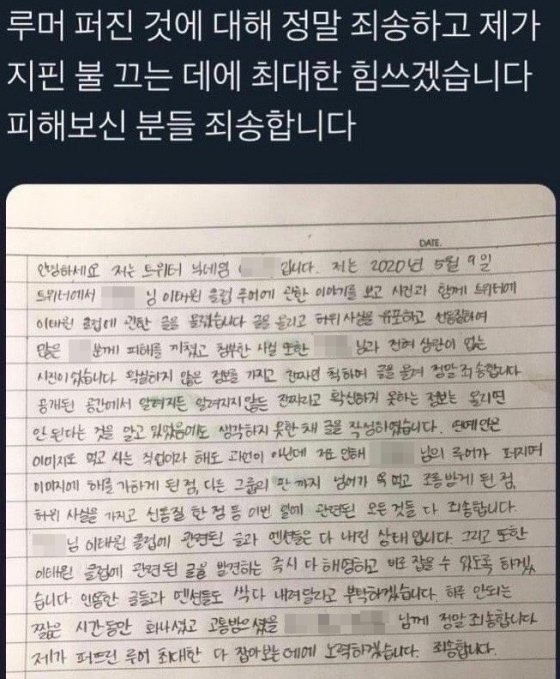 루머 퍼진 것에 대해 정말 죄송하고 제가
지핀 불 끄는 데에 최대한 힘쓰겠습니다
피해보신 분들 죄송합니다
DATE.
안녕하세요 저는 트위터 닉네임 입니다. 저는 2020년 5월 9일
트위터에서 님 이태원 클럽 루머에 관한 이야기를 보고 사진과 함께 트위터에
이태원 클럽에 관한 글을 올렸습니다 글을 올리고 허위 사실을 유포하고 선동질하여
많은 분께 피해를 끼쳤고 첨부한 사실 또한 님과 전혀 상관이 없는
사진이었습니다 확실하지 않은 정보를 가지고 진짜인 척하여 글을 올려 정말 죄송합니다
공개된 공간에서 알려지든 알려지지않든 진짜라고 확신하지 못하는 정보는 올리면
안 된다는 것을 알고 있었음에도 생각하지 못한채 글을 작성하였습니다. 연예인은
이미지로 먹고 사는 직업이라 해도 과언이 아닌데 저로 인해 님의 루머가 퍼지며
이미지에 해를 가하게 된 점, 다른 그룹의 판까지 넘어가 욕 먹고 조롱받게 된 점,
허위 사실을 가지고 선동질 한 점 등 이번 일에 관련된 모든것들 다 죄송합니다.
님 이태원 클럽에 관련된 글과 멘션들은 다 내린 상태입니다. 그리고 또한
이태원 클럽에 관련된 글을 발견하는 즉시 다 해명하고 바로 잡을 수 있도록 하겠
습니다 인용한 글들과 멘션들도 싹 다 내려달라고 부탁하겠습니다. 하루 안되는
짧은 시간동안 화나셨고 고통받으셨을 님께 정말 죄송합니다
제가 퍼뜨린 루머 최대한 다 잡아보는데에 노력하겠습니다. 죄송합니다.